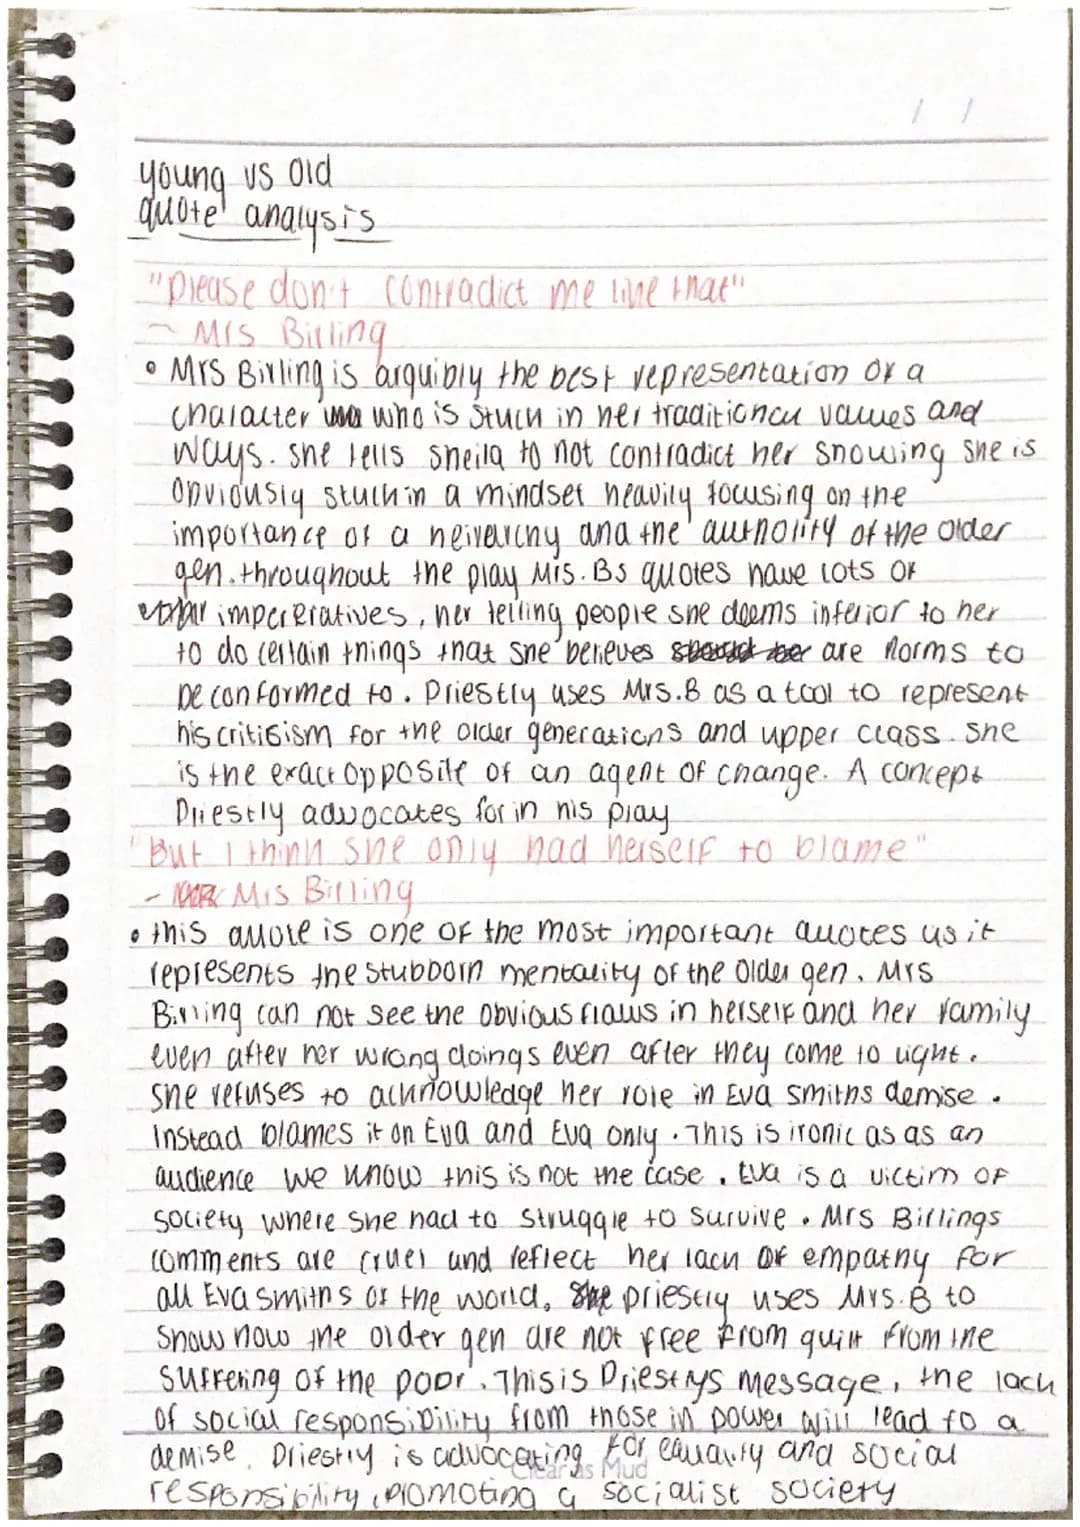 / /
young vs old
quote analysis
"please don't contradict me like that"
- Mrs Birling
• Mrs Birling is arguibly the best representation of a
character who is stuck in her traditional values and
ways. she tells sheila to not contradict her showing she is
obviously stuck in a mindset heavily focusing on the
importance of a heirarchy and the authority of the older
gen. throughout the play Mrs. Bs quotes have lots of
impereratives, her telling people she deems inferior to her
to do certain things that she believes are norms to
be conformed to. Priestly uses Mrs.B as a tool to represent
his critisism for the older generations and upper class. she
is the exact opposite of an agent of change. A concept
Priestly advocates for in his play
"But I think she only had herself to blame"
- Mrs Birling
• this quote is one of the most important quotes as it
represents the stubborn mentality of the older gen. Mrs
Birling can not see the obvious flaws in herself and her family
even after her wrong doings even after they come to light.
she refuses to acknowledge her role in Eva smiths demise.
Instead blames it on Eva and Eva only. This is ironic as as an
audience we know this is not the case. Eva is a victim of
society where she had to struggle to survive. Mrs Birlings
comments are cruel and reflect her lack of empathy for
all Eva smiths of the world. priestly uses Mrs.B to
show how the older gen are not free from guilt from the
suffering of the poor. This is Priestlys message, the lack
of social responsibility from those in power will lead to a
demise. Priestly is advocating for equality and social
Clear as Mud
responsibility, promoting a socialist society